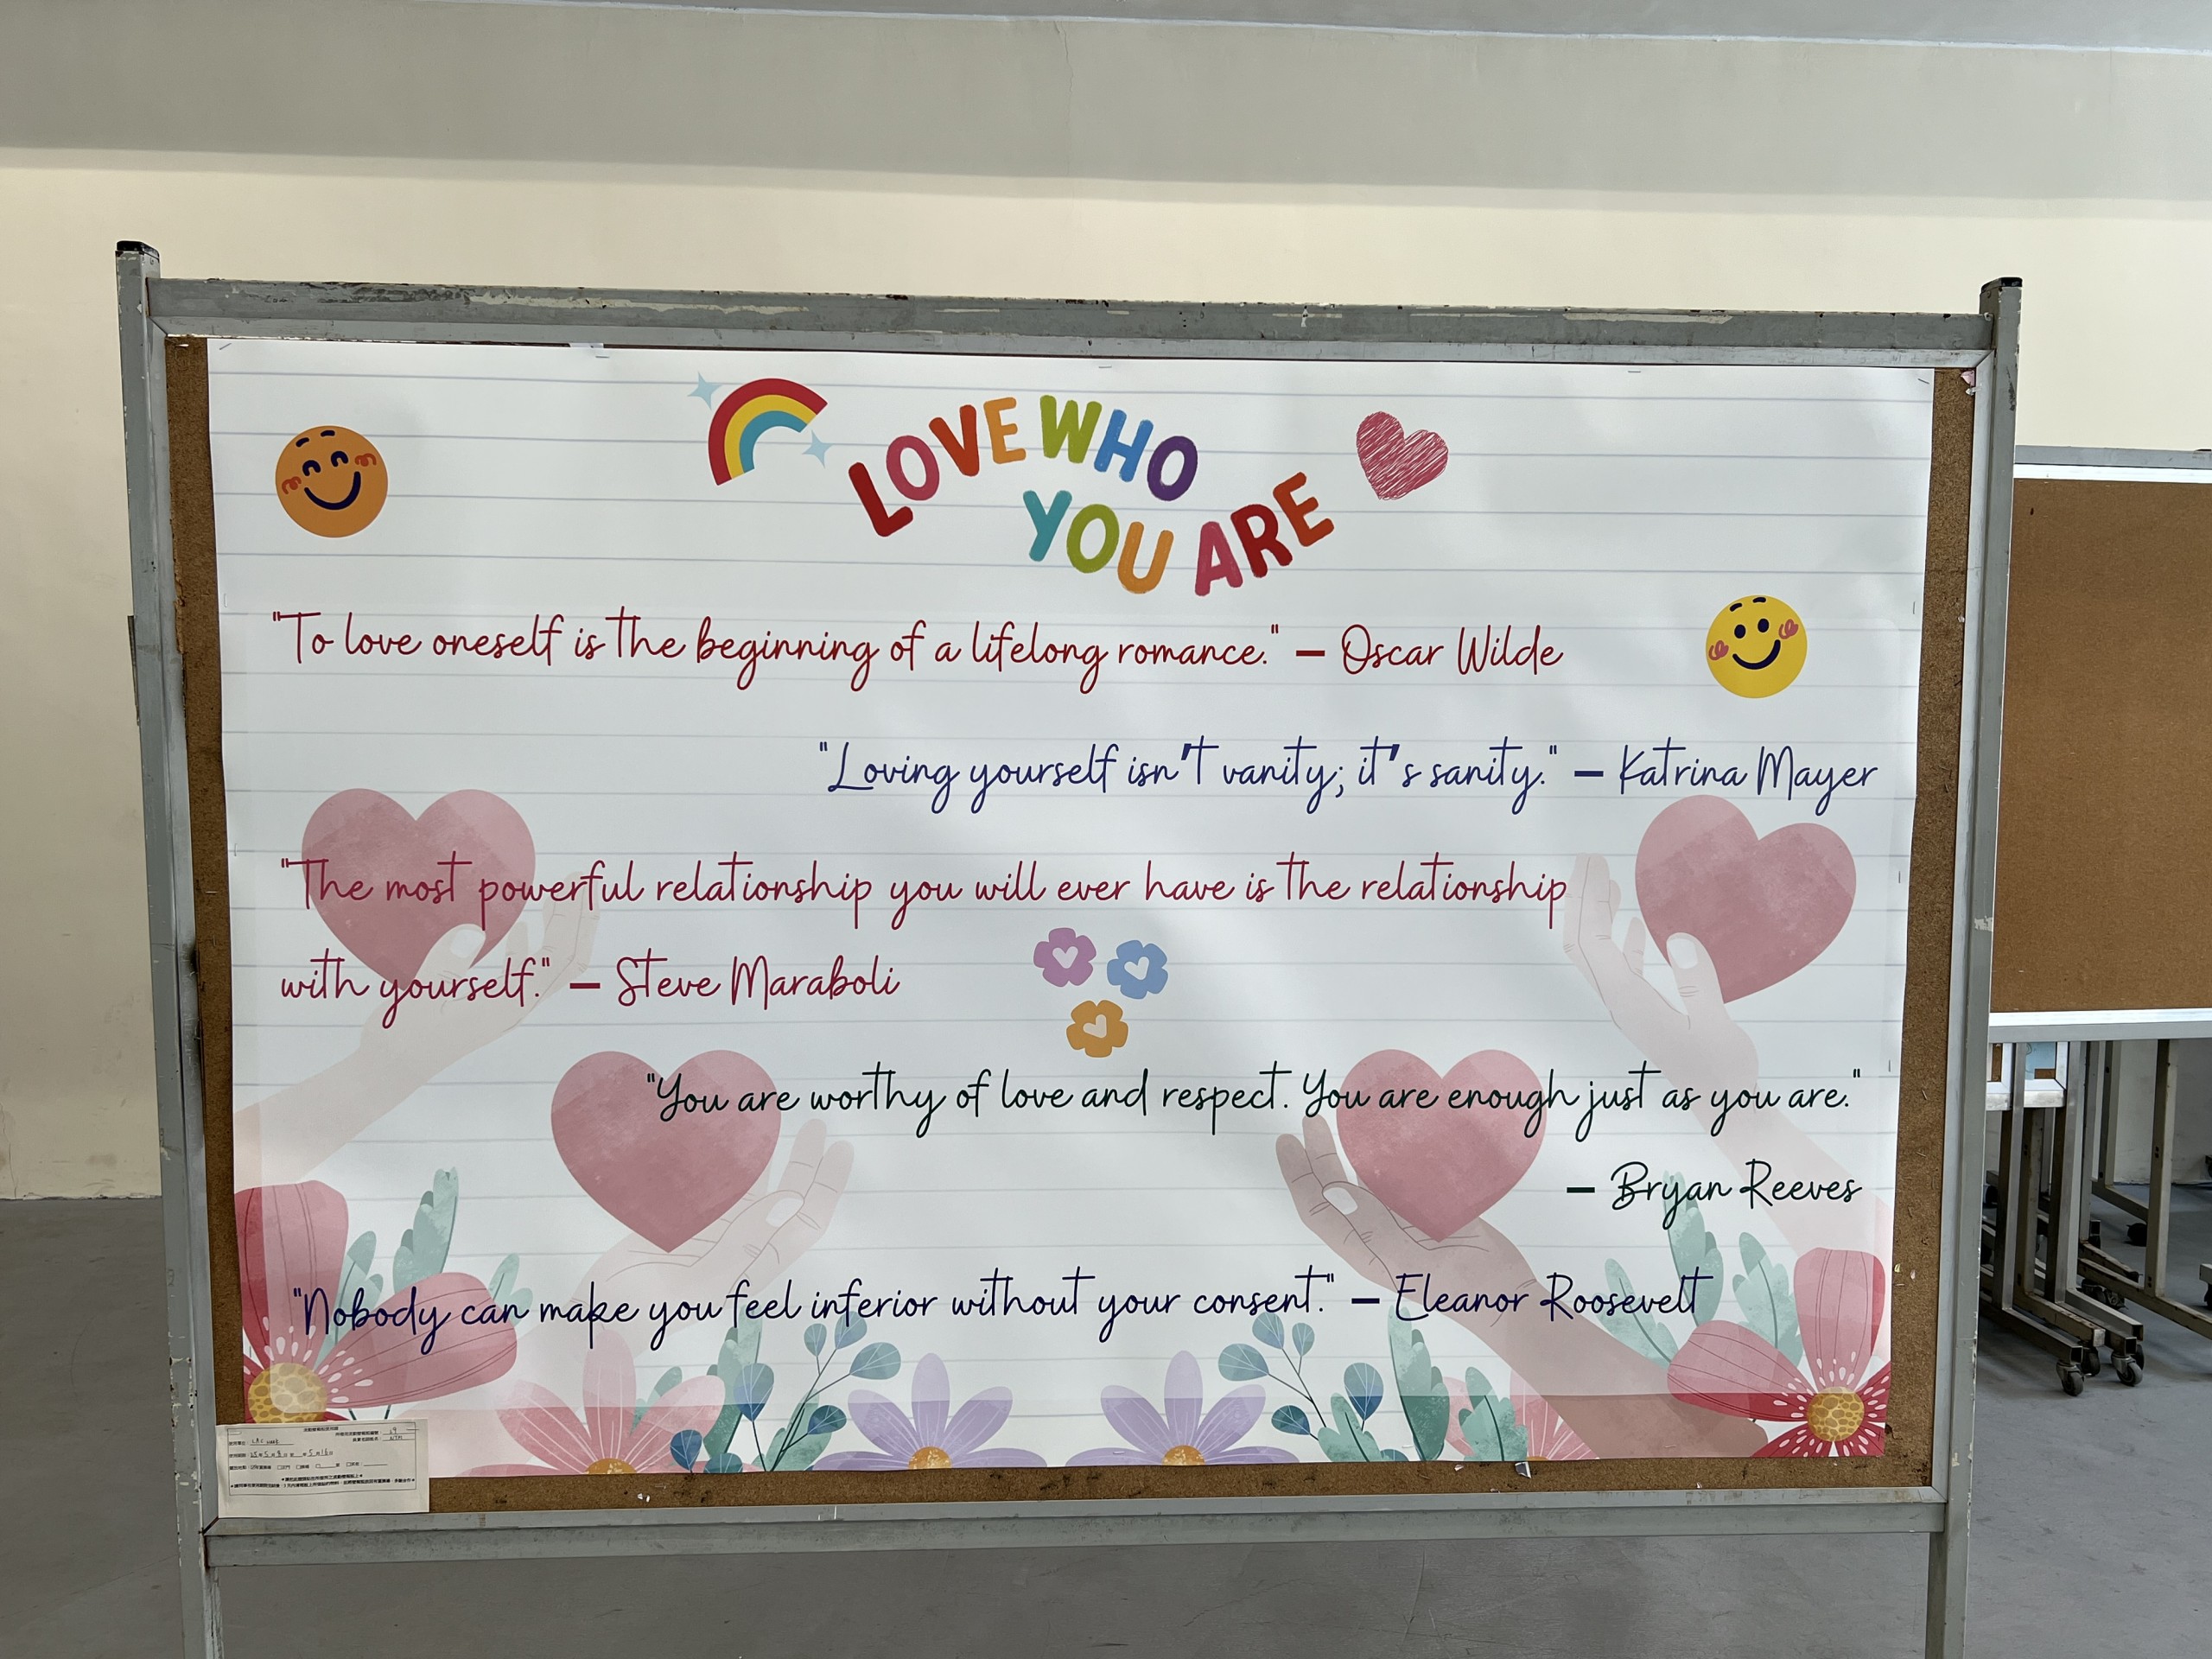 LOVE WHO
YOU ARE
"To love oneself is the beginning of a lifelong romance." — Oscar Wilde
"Loving yourself isn't vanity; it's sanity." — Katrina Mayer
"The most powerful relationship you will ever have is the relationship
with yourself." — Steve Maraboli
"You are worthy of love and respect. You are enough just as you are."
— Bryan Reeves
"Nobody can make you feel inferior without your consent." — Eleanor Roosevelt